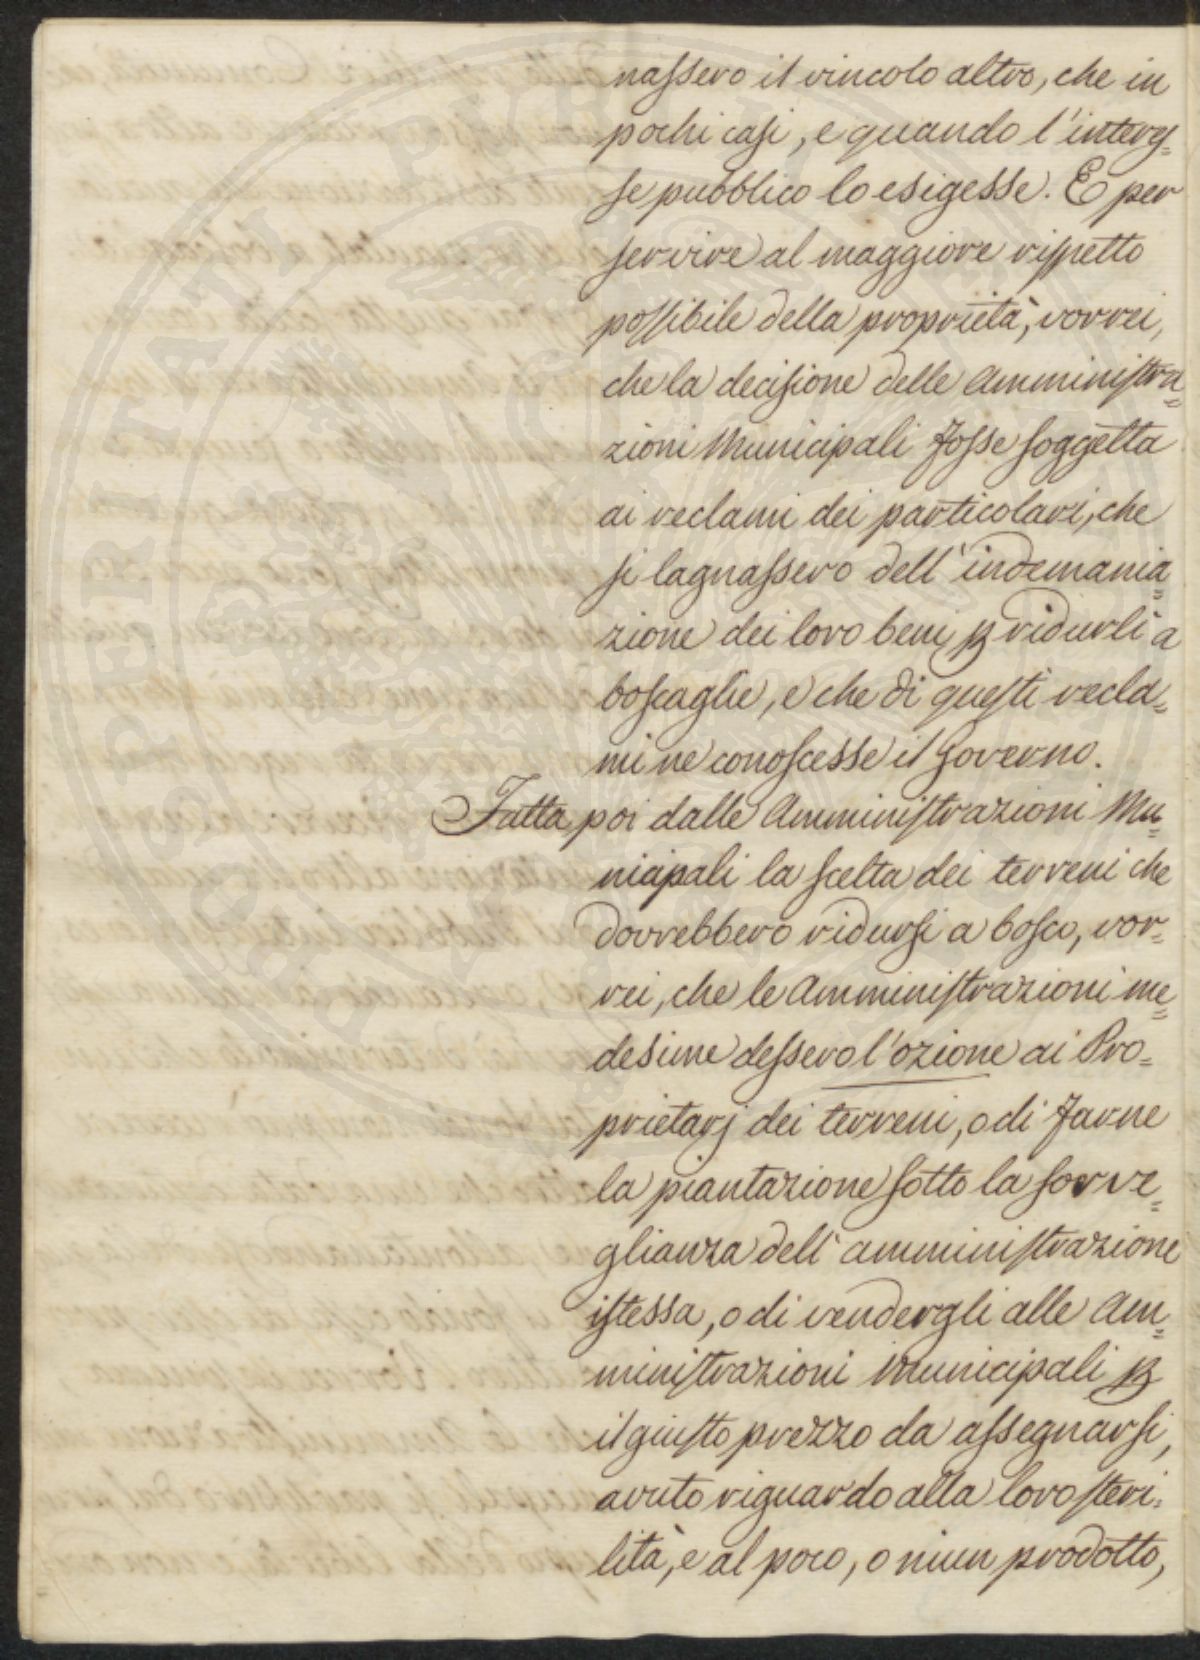 nassero il vincolo altro, che in
pochi casi, e quando l'interes=
se pubblico lo esigesse. E per
servire al maggiore rispetto
possibile della proprietà, vorrei,
che la decisione delle Amministra=
zioni Municipali fosse soggetta
ai reclami dei particolari, che
si lagnassero dell'indemania=
zione dei loro beni p ridurli a
boscaglie, e che di questi recla=
mi ne conoscesse il Governo.
Fatta poi dalle Amministrazioni Mu=
nicipali la scelta dei terreni che
dovrebbero ridursi a bosco, vor=
rei, che le Amministrazioni me=
desime dessero l'ozione ai Pro=
prietarj dei terreni, o di farne
la piantazione sotto la sorve=
glianza dell'amministrazione
istessa, o di vendergli alle Am=
ministrazioni Municipali p
il giusto prezzo da assegnarsi,
avuto riguardo alla loro steri=
lità, e al poco, o niun prodotto,
PROSPERITATI PUBLICAE